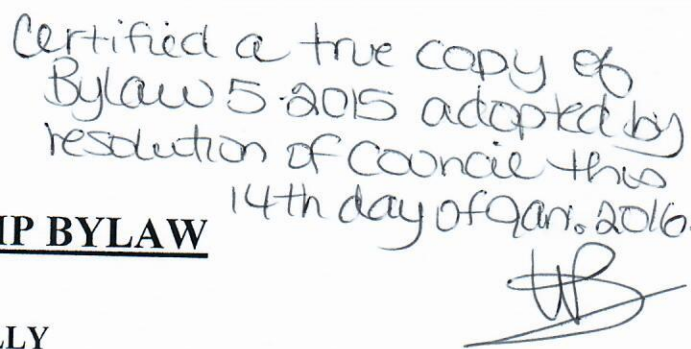 Certified a true copy of
Bylaw 5-2015 adopted by
resolution of Council this
14th day of Jan. 2016.
IP BYLAW
LLY